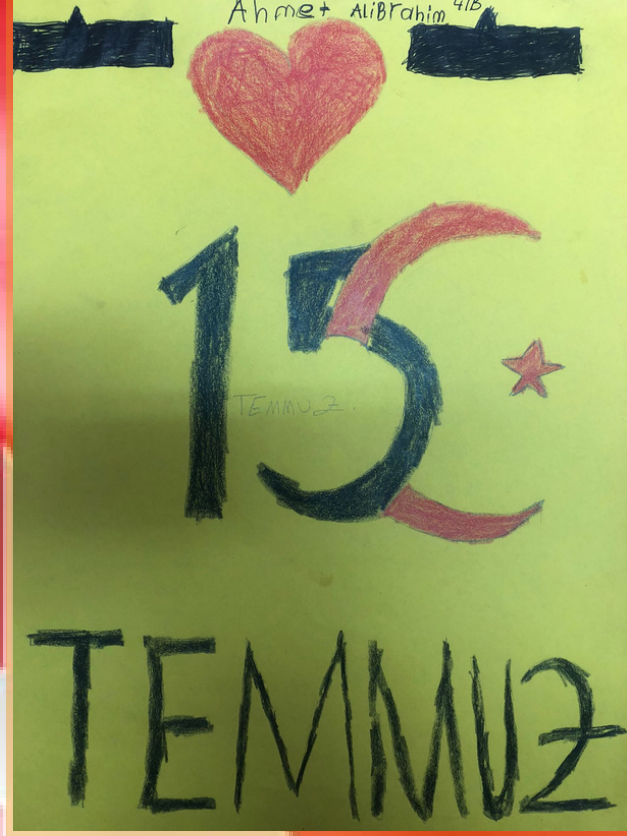 Ahmet AliBrahim 4/B
15
TEMMUZ.
TEMMUZ